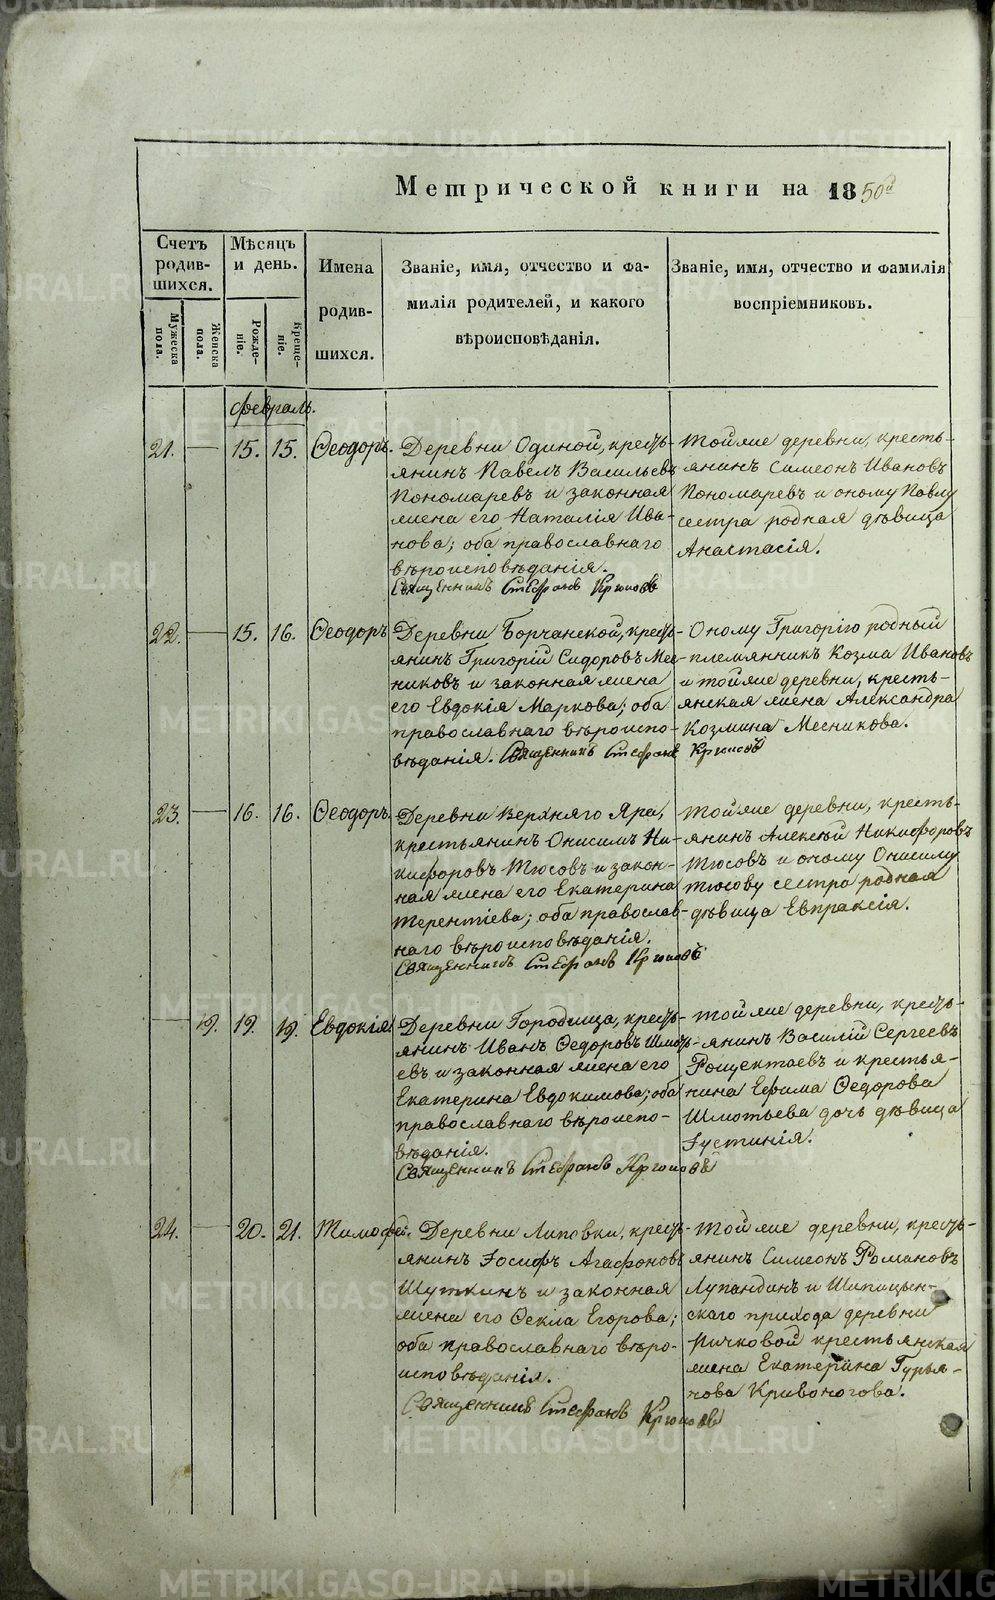 Метрической книги на 1850й
Счетъ родив-шихся.
Мѣсяцъ и день.
Имена родив-шихся.
Званіе, имя, отчество и фа-
милія родителей, и какого
вѣроисповѣданія.
Званіе, имя, отчество и фамилія
воспріемниковъ.
Мужеска пола.
Женска пола.
Рожде-ніе.
Креще-ніе.
Февраль.
21. 15. 15. Ѳеодоръ.
Деревни Одиной, кресть-
янинъ Павелъ Васильевъ
Пономаревъ и законная
жена его Наталія Ива-
нова; оба православнаго
вѣроисповѣданія.
Священникъ Стефанъ Крюковъ
Той же деревни, кресть-
янинъ Симеонъ Ивановъ
Пономаревъ и оному Павлу
сестра родная дѣвица
Анастасія.
22. 15. 16. Ѳеодоръ
Деревни Борчанской, кресть-
янинъ Григорій Сидоровъ Мес-
никовъ и законная жена
его Евдокія Маркова; оба
православнаго вѣроиспо-
вѣданія. Священникъ Стефанъ Крюковъ
Оному Григорію родный
племянникъ Козма Ивановъ
и той же деревни, кресть-
янская жена Александра
Козмина Месникова.
23. 16. 16. Ѳеодоръ.
Деревни Верхняго Яра,
крестьянинъ Онисимъ Ни-
кифоровъ Тюсовъ и закон-
ная жена его Екатерина
Терентіева; оба православ-
наго вѣроисповѣданія.
Священникъ Стефанъ Крюковъ
Той же деревни, кресть-
янинъ Алексѣй Никифоровъ
Тюсовъ и оному Онисиму
Тюсову сестра родная
дѣвица Евпраксія.
19. 19. 19. Евдокія
Деревни Городища, кресть-
янинъ Иванъ Ѳедоровъ Шмоть-
евъ и законная жена его
Екатерина Евдокимова; оба
православнаго вѣроиспо-
вѣданія.
Священникъ Стефанъ Крюковъ
Той же деревни, кресть-
янинъ Василій Сергеевъ
Рощектаевъ и крестья-
нина Ефима Ѳедорова
Шмотьева дочь дѣвица
Іустинія.
24. 20. 21. Тимофей.
Деревни Липовки, кресть-
янинъ Іосифъ Агафоновъ
Шуткинъ и законная
жена его Ѳекла Егорова;
оба православнаго вѣро-
исповѣданія.
Священникъ Стефанъ Крюковъ
Той же деревни, кресть-
янинъ Симеонъ Романовъ
Лупандинъ и Шипицын-
скаго прихода деревни
Ричковой крестьянская
жена Екатерина Гурья-
нова Кривоногова.
METRIKI.GASO-URAL.RU